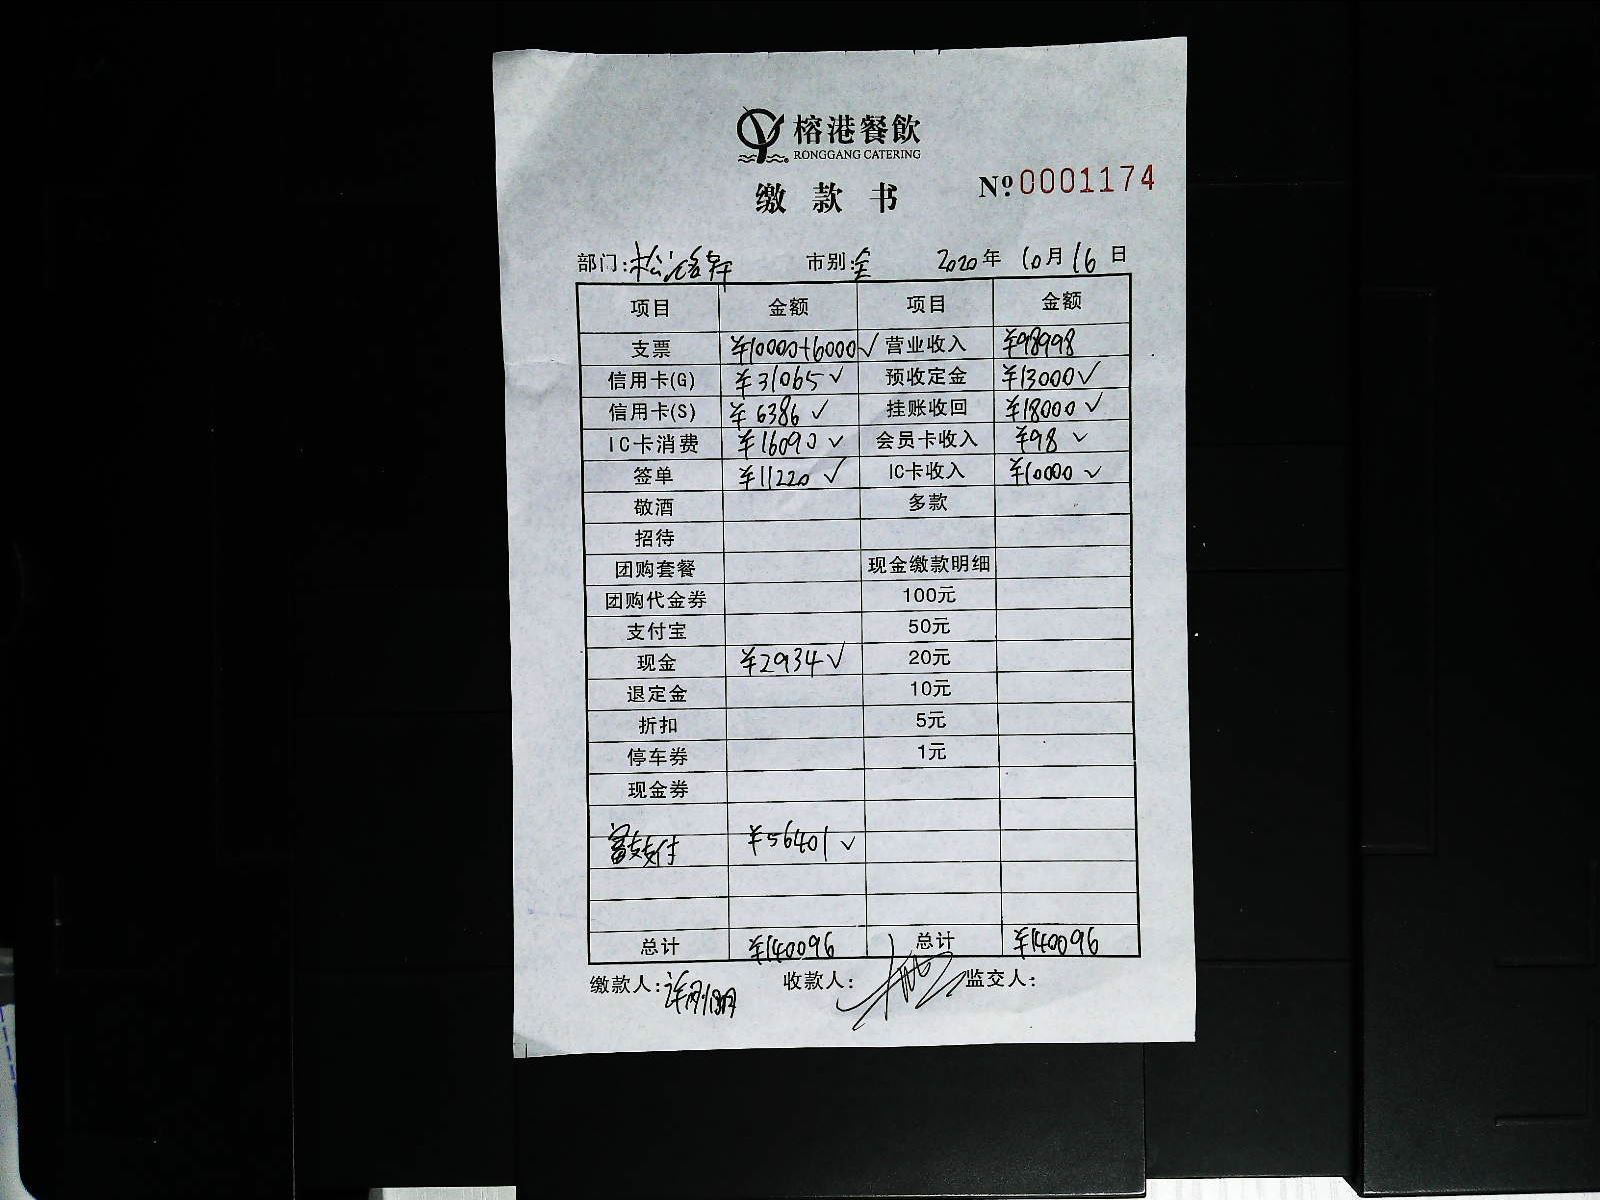 榕港餐飲
RONGGANG CATERING
缴款书
№ 0001174
部门: 市别:全 2020年10月16日
项目 金额 项目 金额
支票 ¥10000+6000✓ 营业收入 ¥98998
信用卡(G) ¥31065✓ 预收定金 ¥13000✓
信用卡(S) ¥6386✓ 挂账收回 ¥18000✓
IC卡消费 ¥16090✓ 会员卡收入 ¥98✓
签单 ¥11220✓ IC卡收入 ¥10000✓
敬酒 多款
招待
团购套餐 现金缴款明细
团购代金券 100元
支付宝 50元
现金 ¥2934✓ 20元
退定金 10元
折扣 5元
停车券 1元
现金券
支付 ¥56401✓
总计 ¥140096 总计 ¥140096
缴款人: 收款人: 监交人: